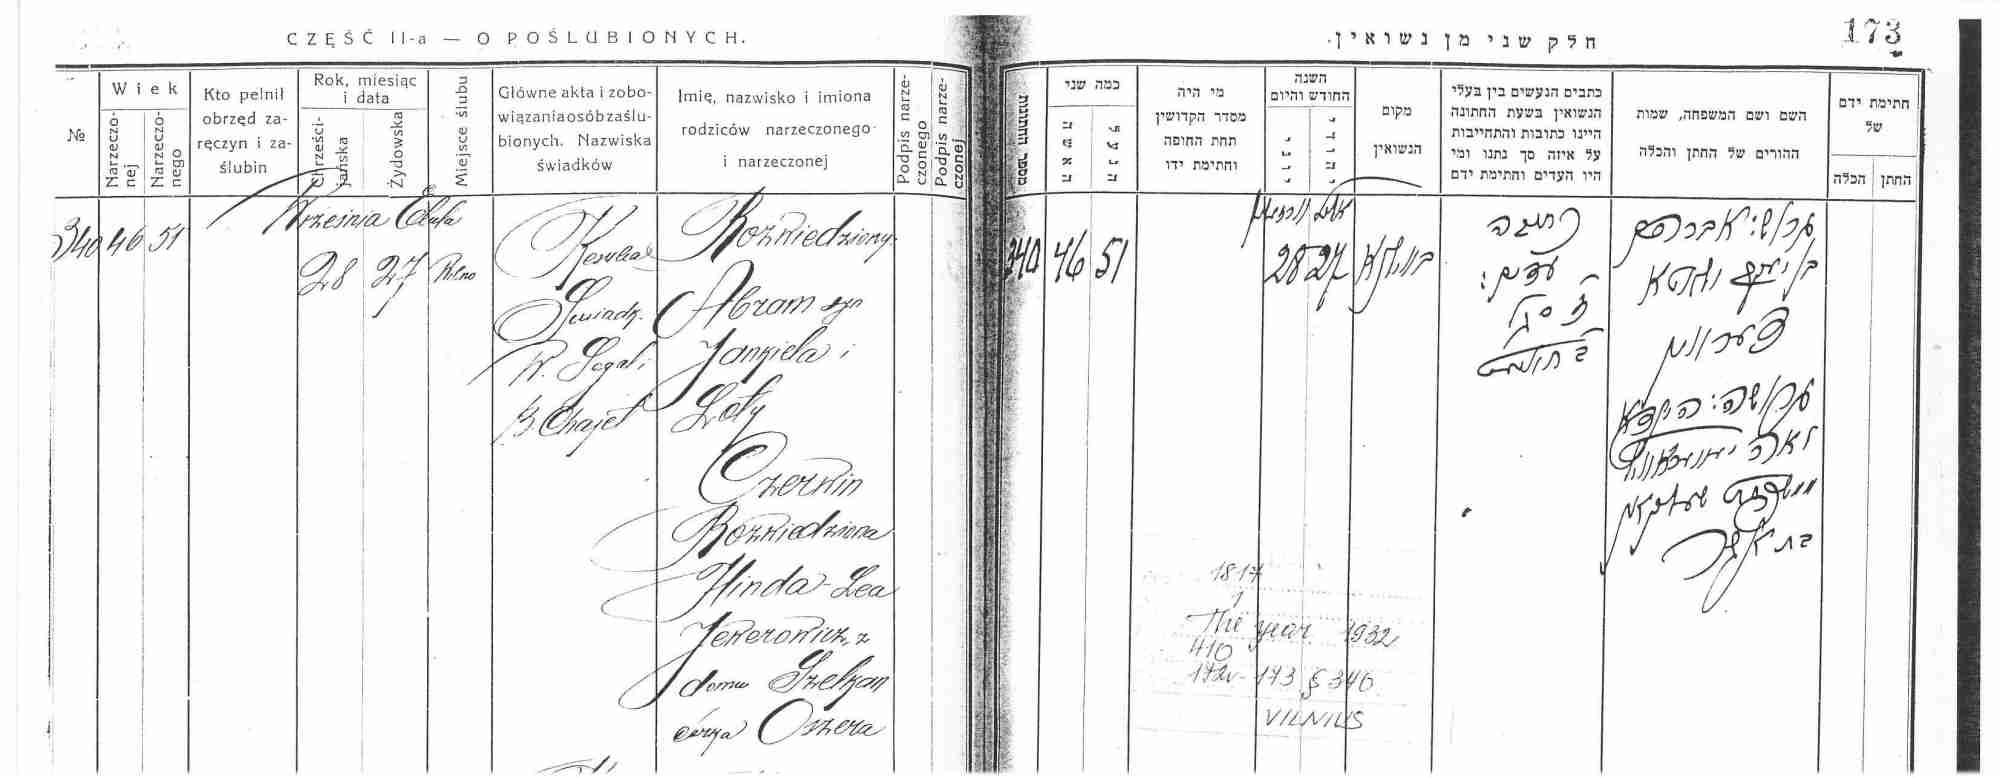 CZĘŚĆ II-a — O POŚLUBIONYCH.
№
Wiek
Narzeczo-
nej
Narzeczo-
nego
Kto pełnił
obrzęd za-
ręczyn i za-
ślubin
Rok, miesiąc
i data
Chrześci-
jańska
Żydowska
Miejsce ślubu
Główne akta i zobo-
wiązania osób zaślu-
bionych. Nazwiska
świadków
Imię, nazwisko i imiona
rodziców narzeczonego
i narzeczonej
Podpis narze-
czonego
Podpis narze-
czonej
340 46 51
Września Elula
28 27 Wilno
Ketuba
Świadk.
W. Segal i
B. Chajet
Rozwiedziony
Abram syn
Jankiela i
Loty
Czerwin
Rozwiedziona
Hinda-Lea
z
domu Szelkan
córka Oszera
חלק שני מן נשואין.
173
מספר החתונות
כמה שני
האשה
הנער
מי היה
מסדר הקדושין
תחת החופה
וחתימת ידו
השנה
החודש והיום
יוני
יהודי
מקום
הנשואין
כתבים הנעשים בין בעלי
הנשואין בשעת החתונה
היינו כתובות והתחייבות
על איזה סך נתנו ומי
היו העדים וחתימת ידם
השם ושם המשפחה, שמות
ההורים של החתן והכלה
חתימת ידם
של
החתן
הכלה
340 46 51
אלול
28 27
ווילנא
כתובה
עדים:
סגל
גרוש: אברהם
בן יעקב
גרושה: הינדא
לאה
בת אשר
1817
1
The year 1932
410
172v-173 § 340
VILNIUS